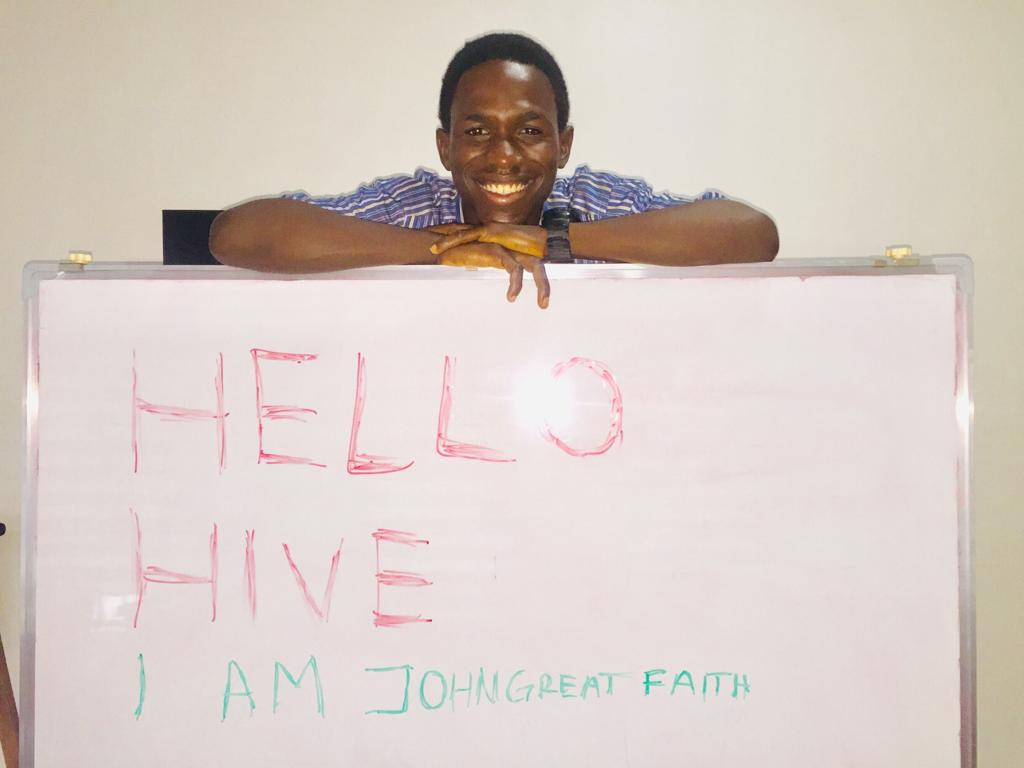 HELLO
HIVE
I AM JOHNGREAT FAITH